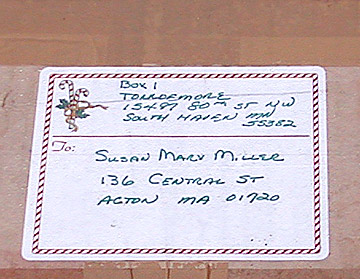 Box 1
TOLLDEMORE
15477 80TH ST NW
SOUTH HAVEN MN
55382
To:
SUSAN MARY MILLER
136 CENTRAL ST
ACTON MA 01720